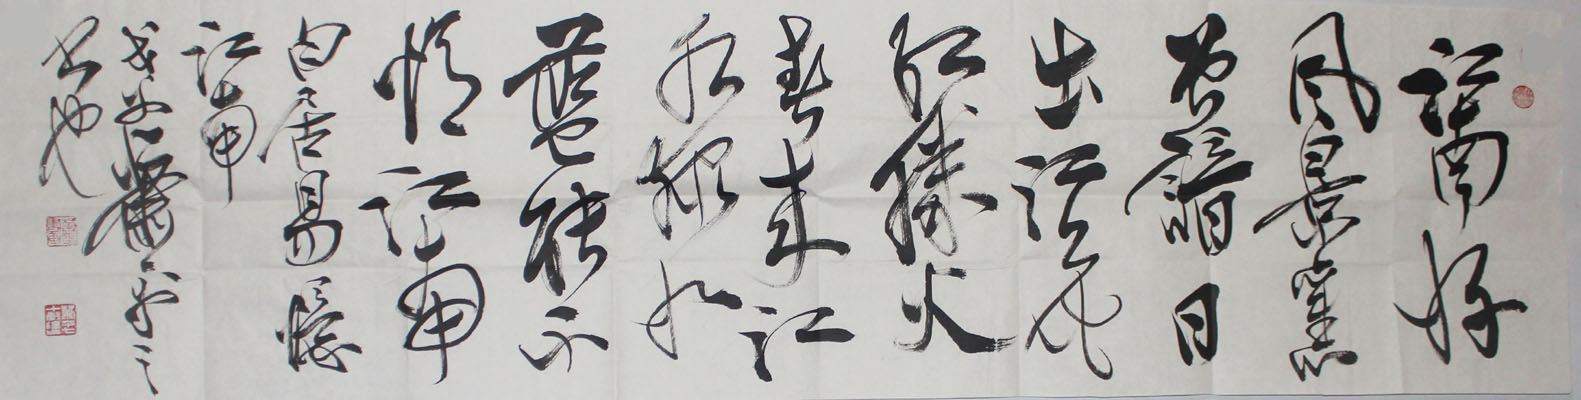 江南好
风景旧
曾谙日
出江花
红胜火
春来江
水绿如
蓝能不
忆江南
白居易忆
江南
书也